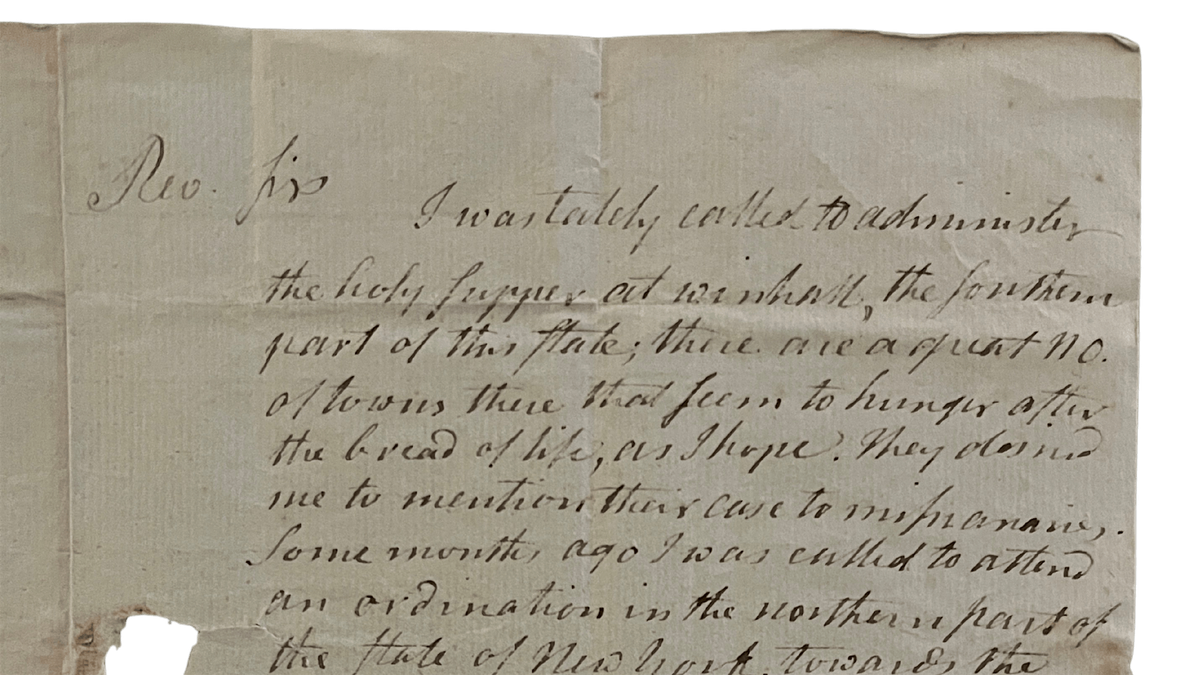 Rev. Sir
I was lately called to administer
the holy supper at winhall, the southern
part of this state; there are a great no.
of towns there that seem to hunger after
the bread of life, as I hope. They desired
me to mention their case to missionaries.
Some months ago I was called to attend
an ordination in the northern part of
the state of New York, towards the